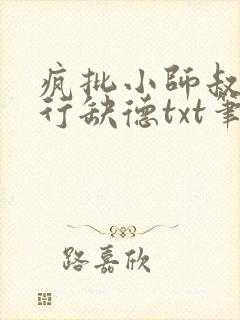 疯批小师叔
行缺德txt笔
路嘉欣